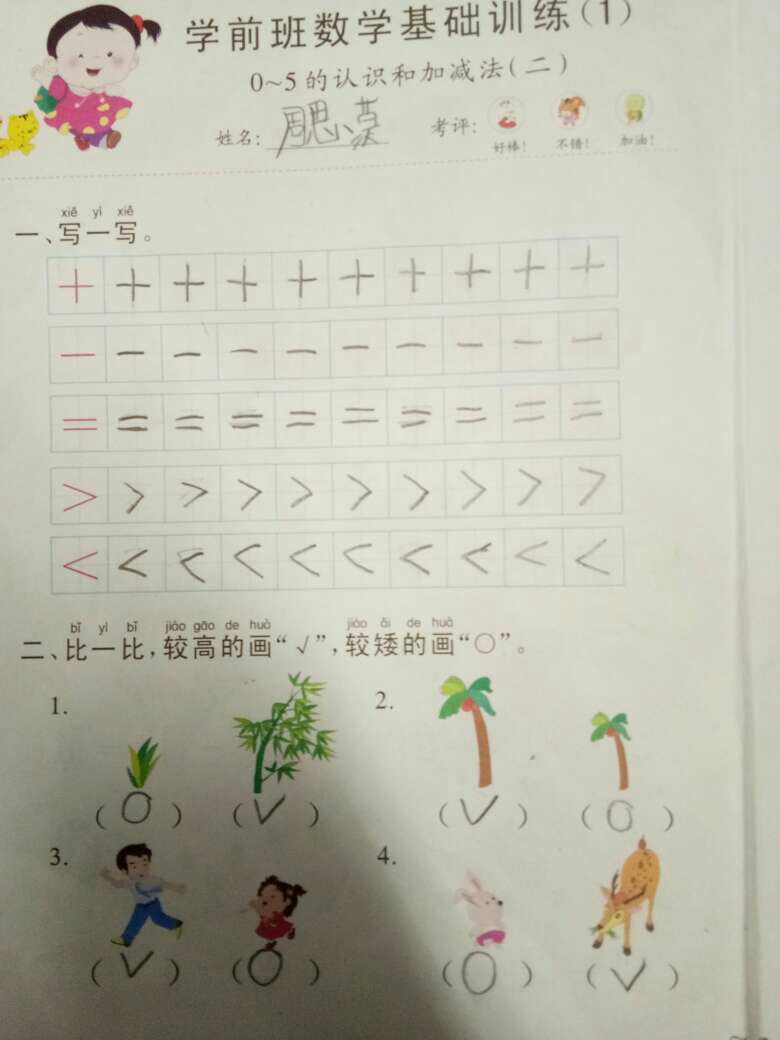 学前班数学基础训练(1)
0~5的认识和加减法(二)
姓名:周思小慕 考评: 好棒! 不错! 加油!
xiě yì xiě
一、写一写。
+ + + + + + + + + +
— — — — — — — — — —
= = = = = = = = = =
> > > > > > > > > >
< < < < < < < < < <
bǐ yì bǐ jiào gāo de huà jiào ǎi de huà
二、比一比,较高的画“√”,较矮的画“○”。
1. 2.
(○) (√) (√) (○)
3. 4.
(√) (○) (○) (√)